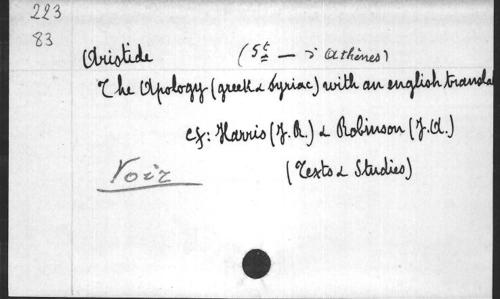 223
83
Aristide (St — d'Athènes)
The Apology (greek & Syriac) with an english transla
cf: Harris (J.R.) & Robinson (J.A.)
Voir
(Texts & Studies)